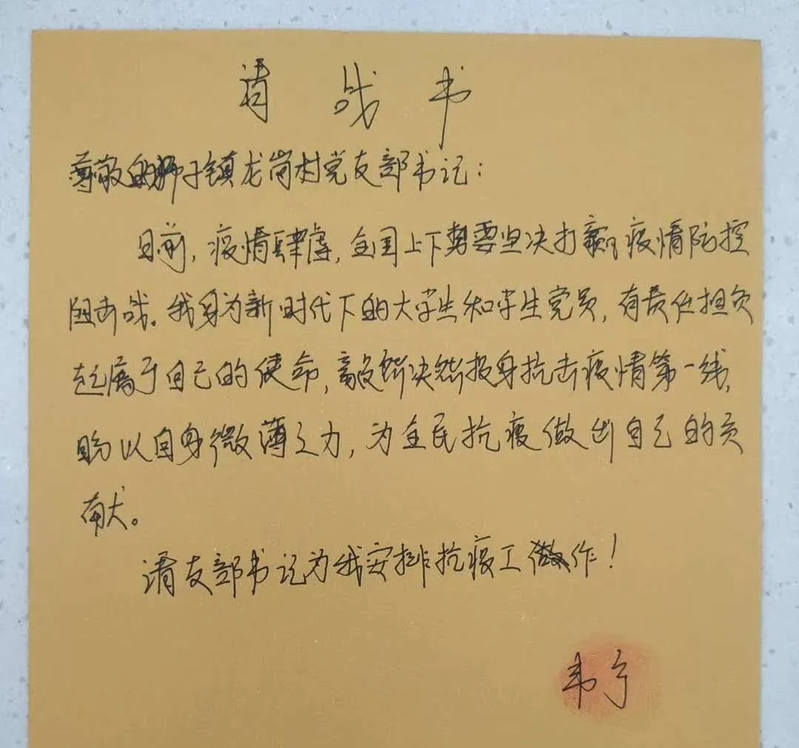 请战书
尊敬的狮子镇龙岗村党支部书记:
目前,疫情肆虐,全国上下势要坚决打赢疫情防控
阻击战。我身为新时代下的大学生和学生党员,有责任担负
起属于自己的使命,毅然决然投身抗击疫情第一线,
盼以自身微薄之力,为全民抗疫做出自己的贡
献。
请支部书记为我安排抗疫工作!
韦宁